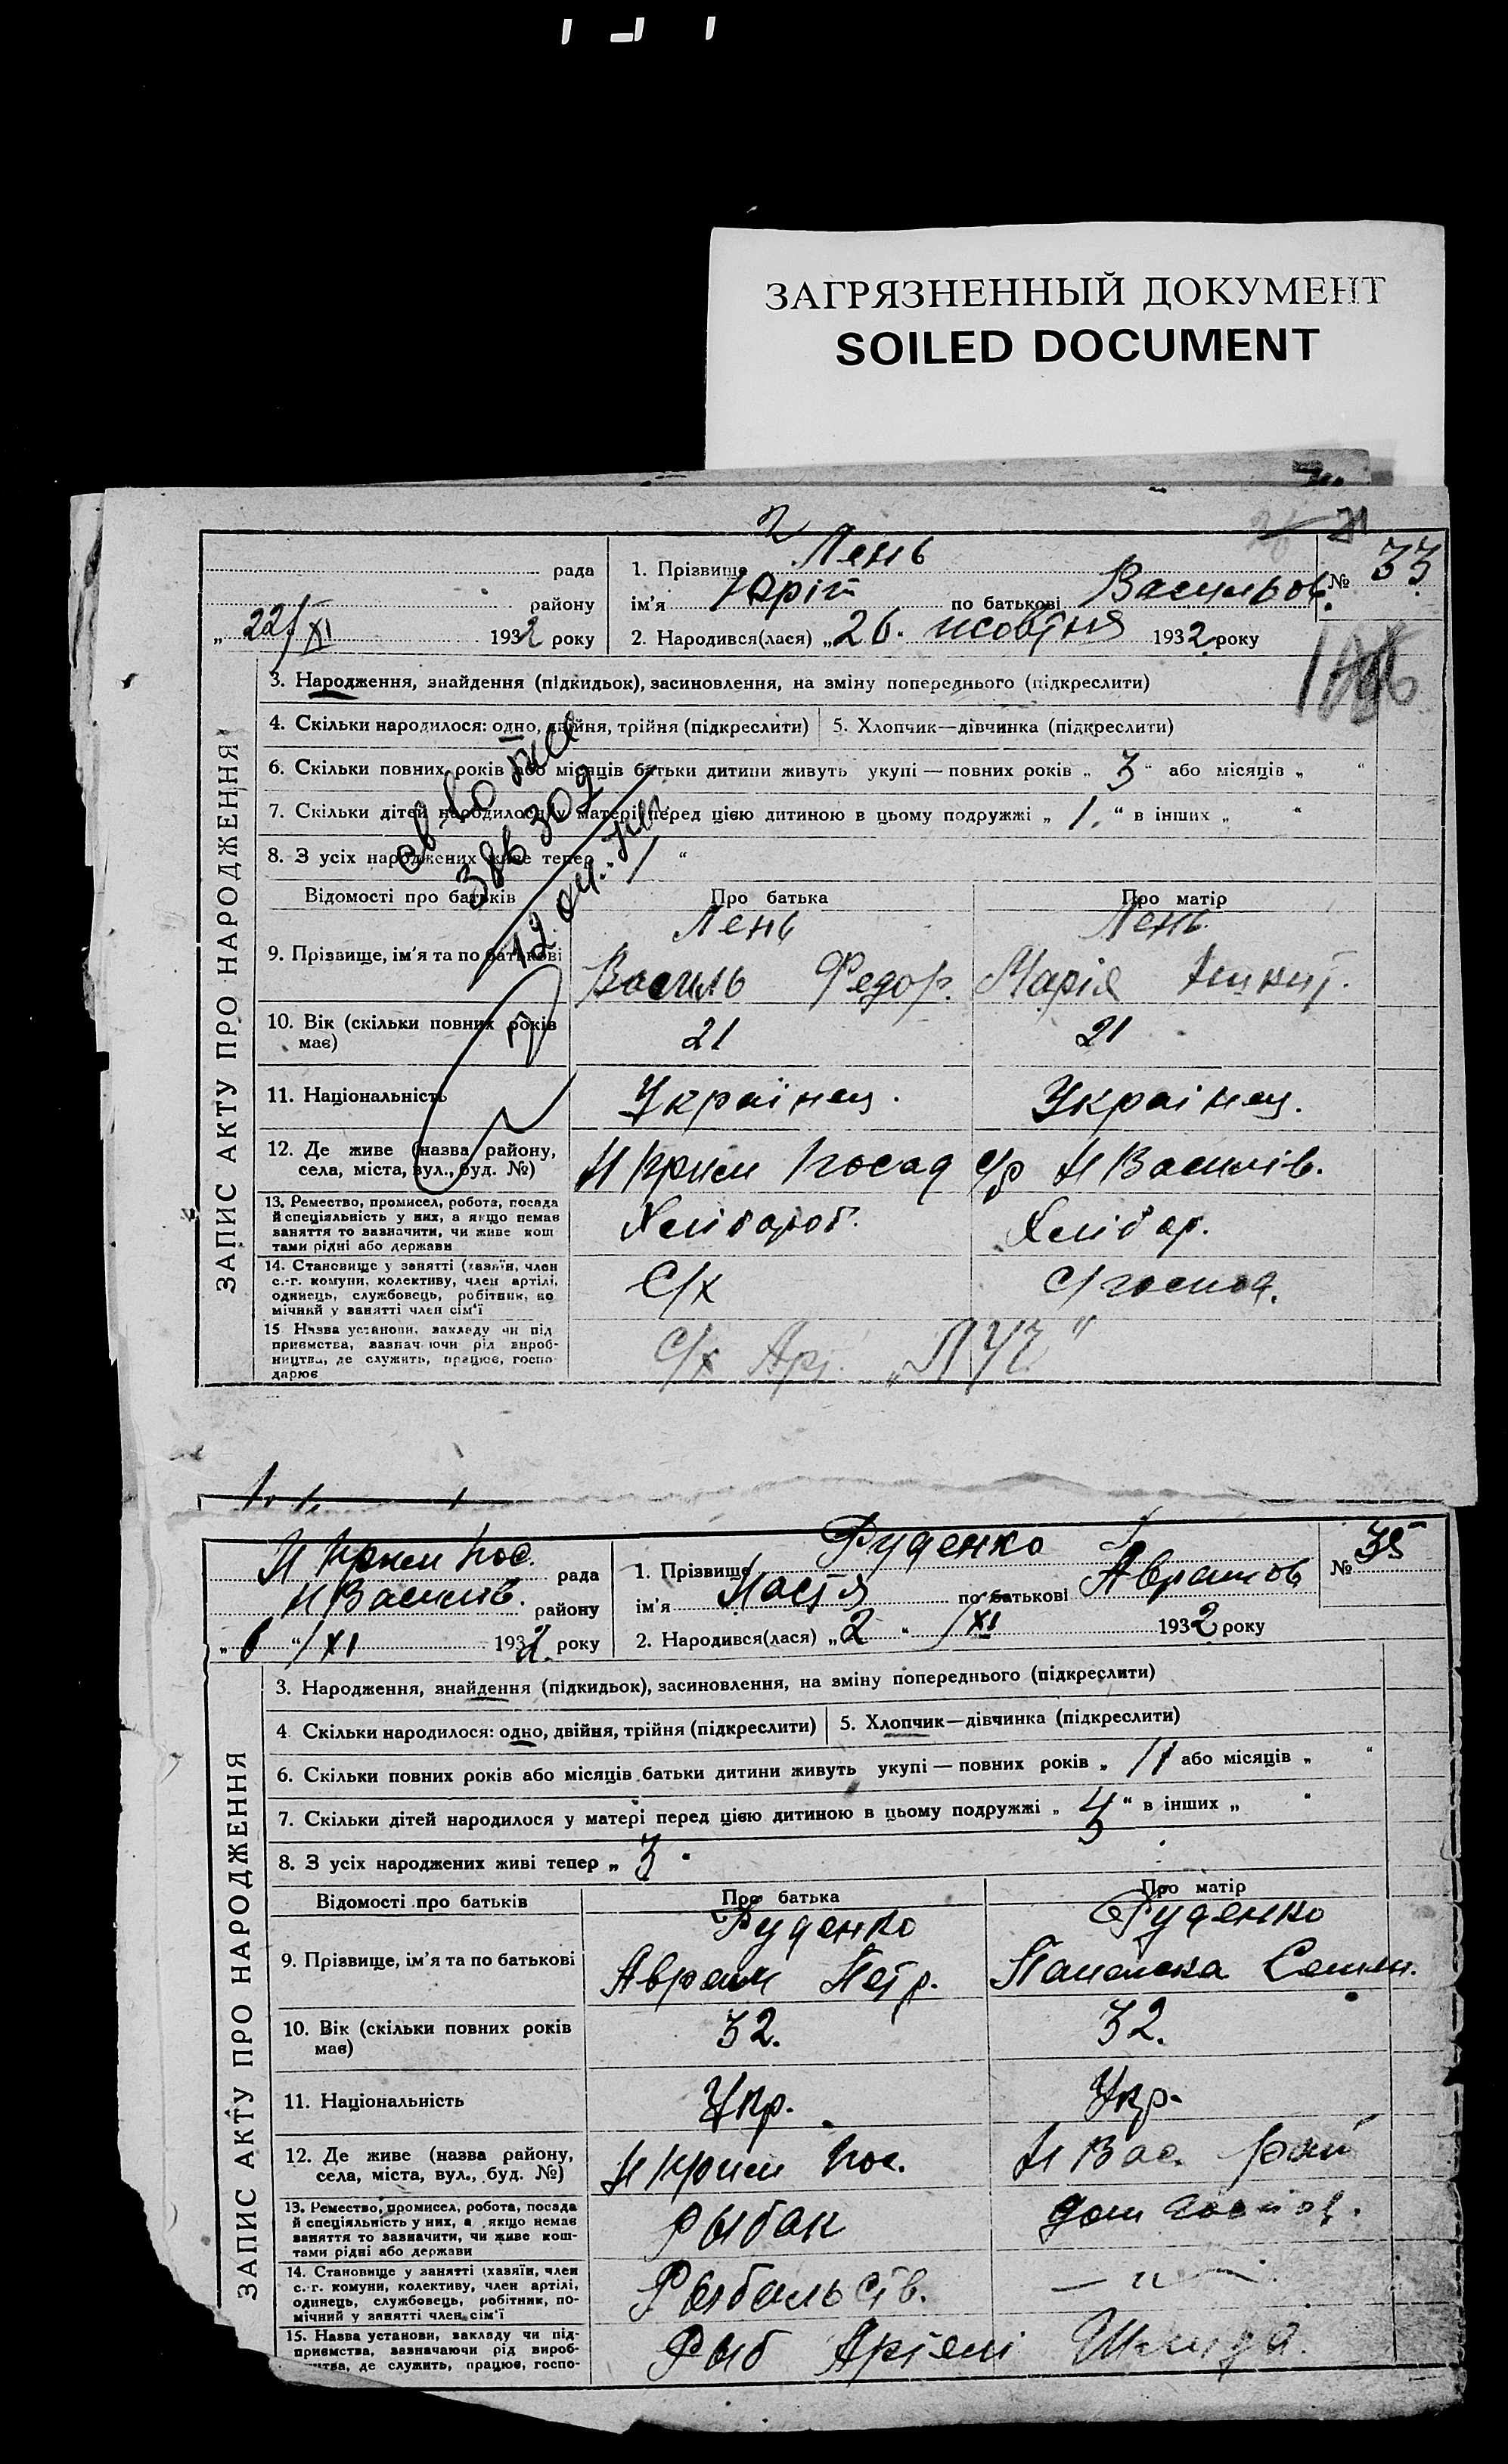 ЗАГРЯЗНЕННЫЙ ДОКУМЕНТ
SOILED DOCUMENT
2
рада
району
„ 22/XI 1932 року
1. Прізвище Лень
ім'я Юрій по батькові Васильов.
2. Народився(лася) „26. жовтня 1932 року
№ 33
ЗАПИС АКТУ ПРО НАРОДЖЕННЯ
3. Народження, знайдення (підкидьок), засиновлення, на зміну попереднього (підкреслити)
4. Скільки народилося: одно, двійня, трійня (підкреслити)
5. Хлопчик—дівчинка (підкреслити)
6. Скільки повних років або місяців батьки дитини живуть укупі — повних років „ 3 “ або місяців „ “
7. Скільки дітей народилося у матері перед цією дитиною в цьому подружжі „ 1. “ в інших „ “
8. З усіх народжених живе тепер „ 1 “
Відомості про батьків
Про батька
Про матір
9. Прізвище, ім'я та по батькові
Лень
Василь Федор.
Лень
Марія Никит.
10. Вік (скільки повних років має)
21
21
11. Національність
Українец.
Українец.
12. Де живе (назва району, села, міста, вул., буд. №)
Н Крим Посад
с/р Н Василів.
13. Ремество, промисел, робота, посада й спеціяльність у них, а якщо немає заняття то зазначити, чи живе коштами рідні або держави
Хлібороб.
Хлібор.
14. Становище у занятті (хазяїн, член с.-г. комуни, колективу, член артілі, одинець, службовець, робітник, помічний у занятті член сім'ї
С/х
С/господ.
15. Назва установи, закладу чи підприємства, зазначаючи рід виробництва, де служить, працює, господарює
С/х Арт. „ЛУЧ“
Н Крим Пос. рада
Н Василів. району
„ 6 “/XI 1932 року
1. Прізвище Руденко
ім'я Настя по батькові Аврамов
2. Народився(лася) „ 2 “ /XI 1932 року
№ 35
ЗАПИС АКТУ ПРО НАРОДЖЕННЯ
3. Народження, знайдення (підкидьок), засиновлення, на зміну попереднього (підкреслити)
4. Скільки народилося: одно, двійня, трійня (підкреслити)
5. Хлопчик—дівчинка (підкреслити)
6. Скільки повних років або місяців батьки дитини живуть укупі — повних років „ 11 або місяців „ “
7. Скільки дітей народилося у матері перед цією дитиною в цьому подружжі „ “ в інших „ “
8. З усіх народжених живі тепер „ 3 “
Відомості про батьків
Про батька
Про матір
9. Прізвище, ім'я та по батькові
Руденко
Аврам Петр.
Руденко
10. Вік (скільки повних років має)
32.
32.
11. Національність
Укр.
Укр.
12. Де живе (назва району, села, міста, вул., буд. №)
Н Крим Пос.
Н Вас. рай
13. Ремество, промисел, робота, посада й спеціяльність у них, а якщо немає заняття то зазначити, чи живе коштами рідні або держави
Рыбак
дом господ.
14. Становище у занятті (хазяїн, член с.-г. комуни, колективу, член артілі, одинець, службовець, робітник, помічний у занятті член сім'ї
Рыбальств.
— „ —
15. Назва установи, закладу чи підприємства, зазначаючи рід виробництва, де служить, працює, госпо-
Рыб Артілі Шмидта.